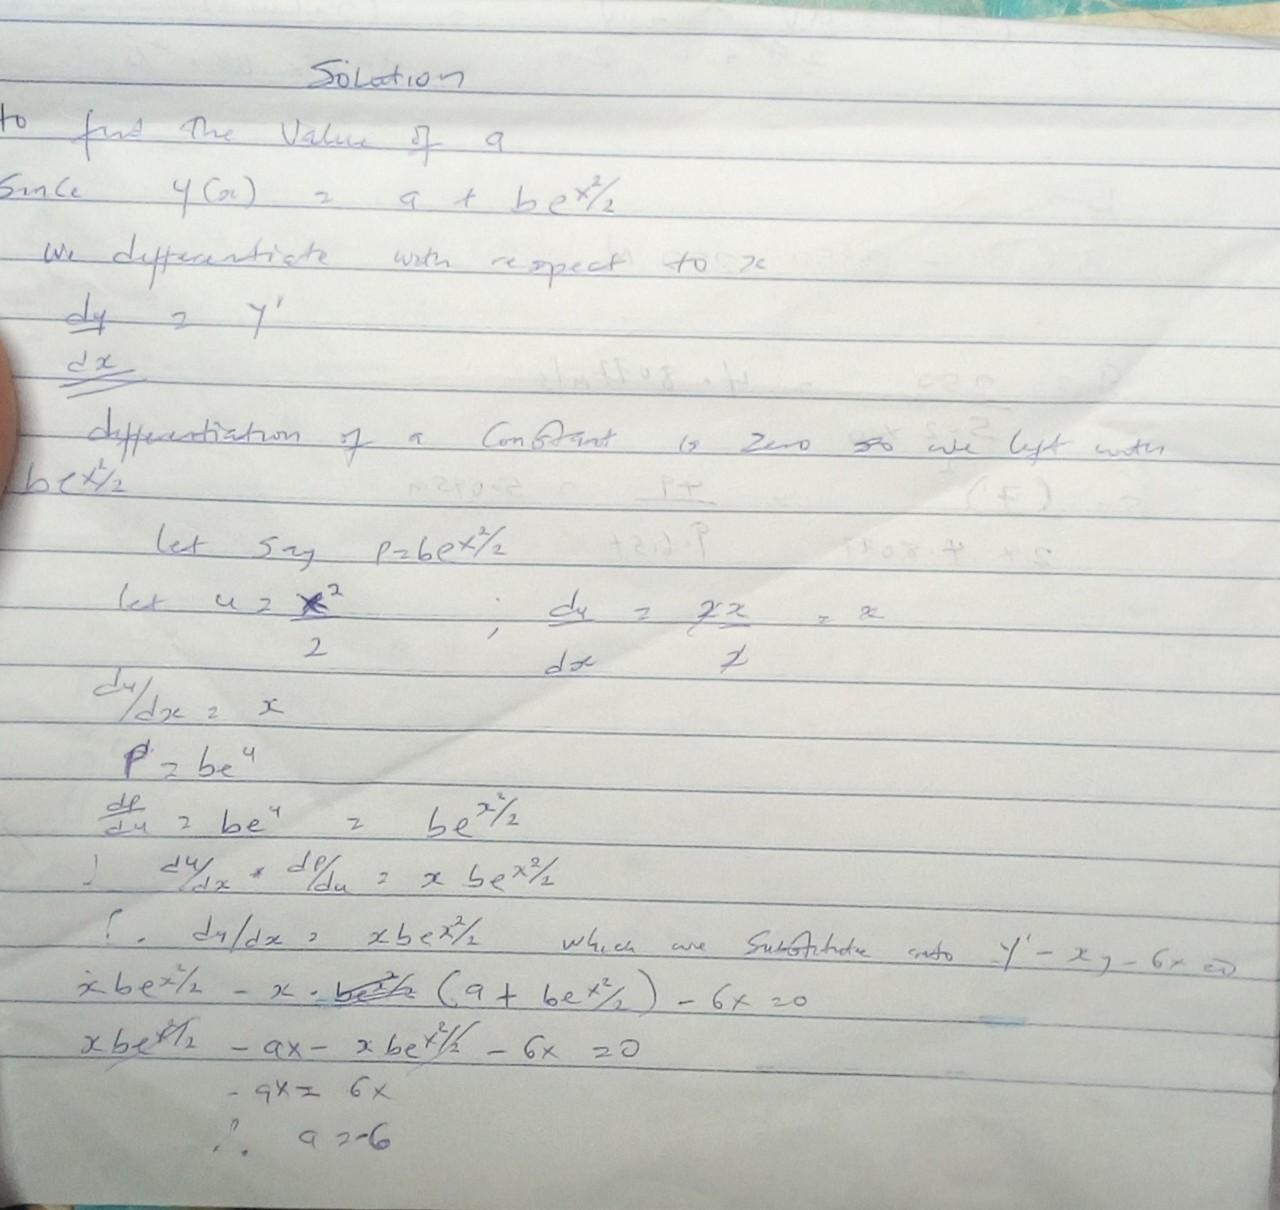 Solution
to find the Value of a
Since y(x) = a + be^x²/2
we differentiate with respect to x
dy/dx = y'
differentiation of a Constant is Zero so we left with
be^x²/2
let say p=be^x²/2
let u = x²/2 ; du/dx = 2x/2 = x
du/dx = x
P = be^u
dp/du = be^u = be^x²/2
du/dx * dp/du = x be^x²/2
∴ dy/dx = xbe^x²/2 which we Substitute into y' - xy - 6x = 0
xbe^x²/2 - x · (a + be^x²/2) - 6x = 0
xbe^x²/2 - ax - xbe^x²/2 - 6x = 0
- ax = 6x
∴ a = -6